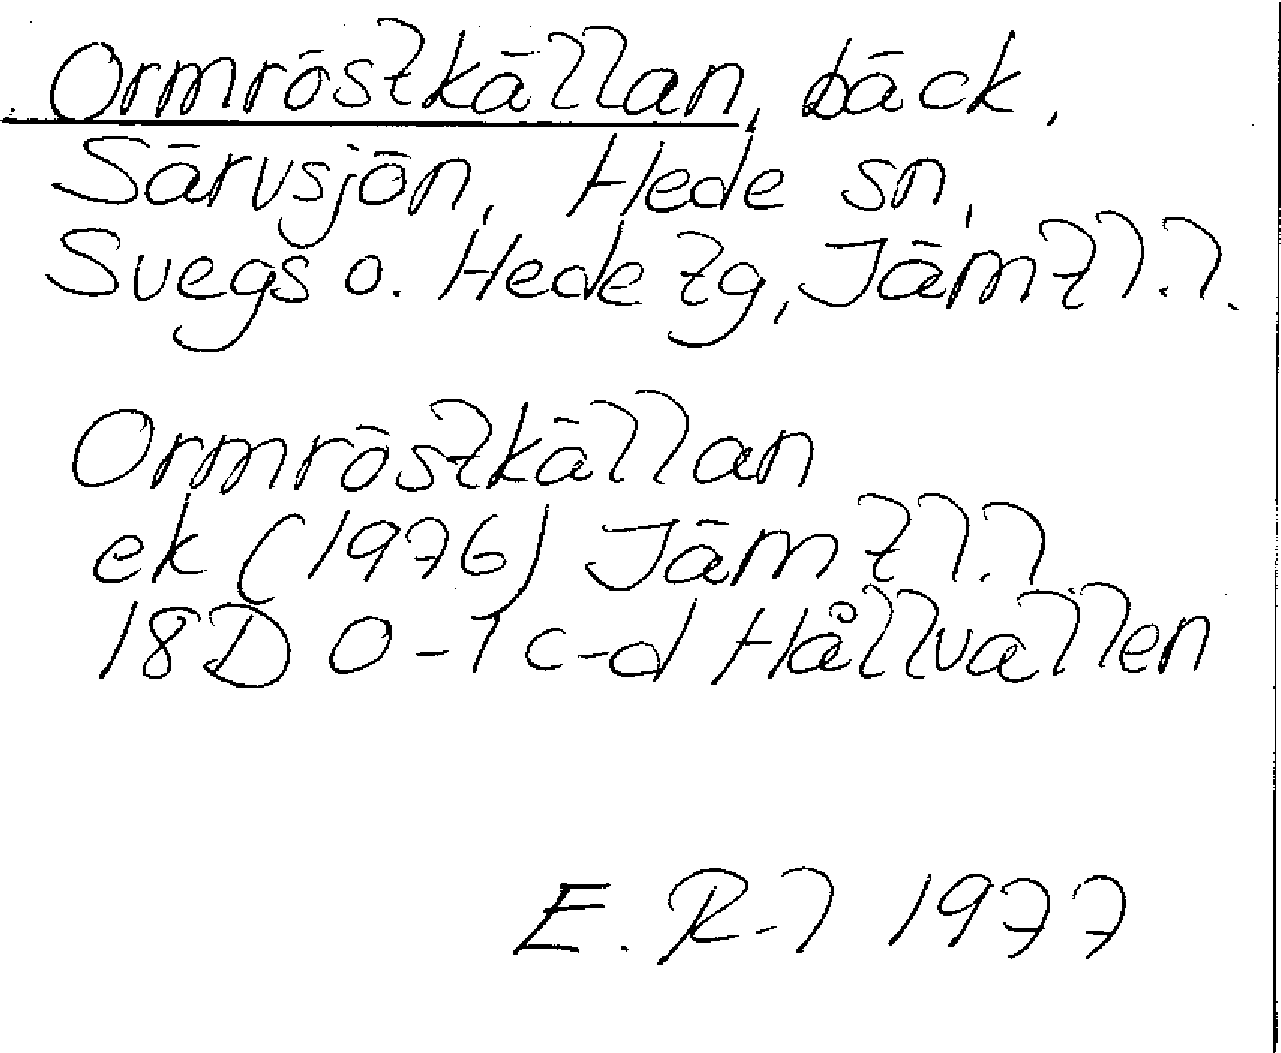 Ormröstkällan, bäck,
Särvsjön, Hede sn,
Svegs o. Hede tg, Jämtl.l.
Ormröstkällan
ek (1976) Jämtl.l
18D 0-1 c-d Hållvallen
E. R-l 1977